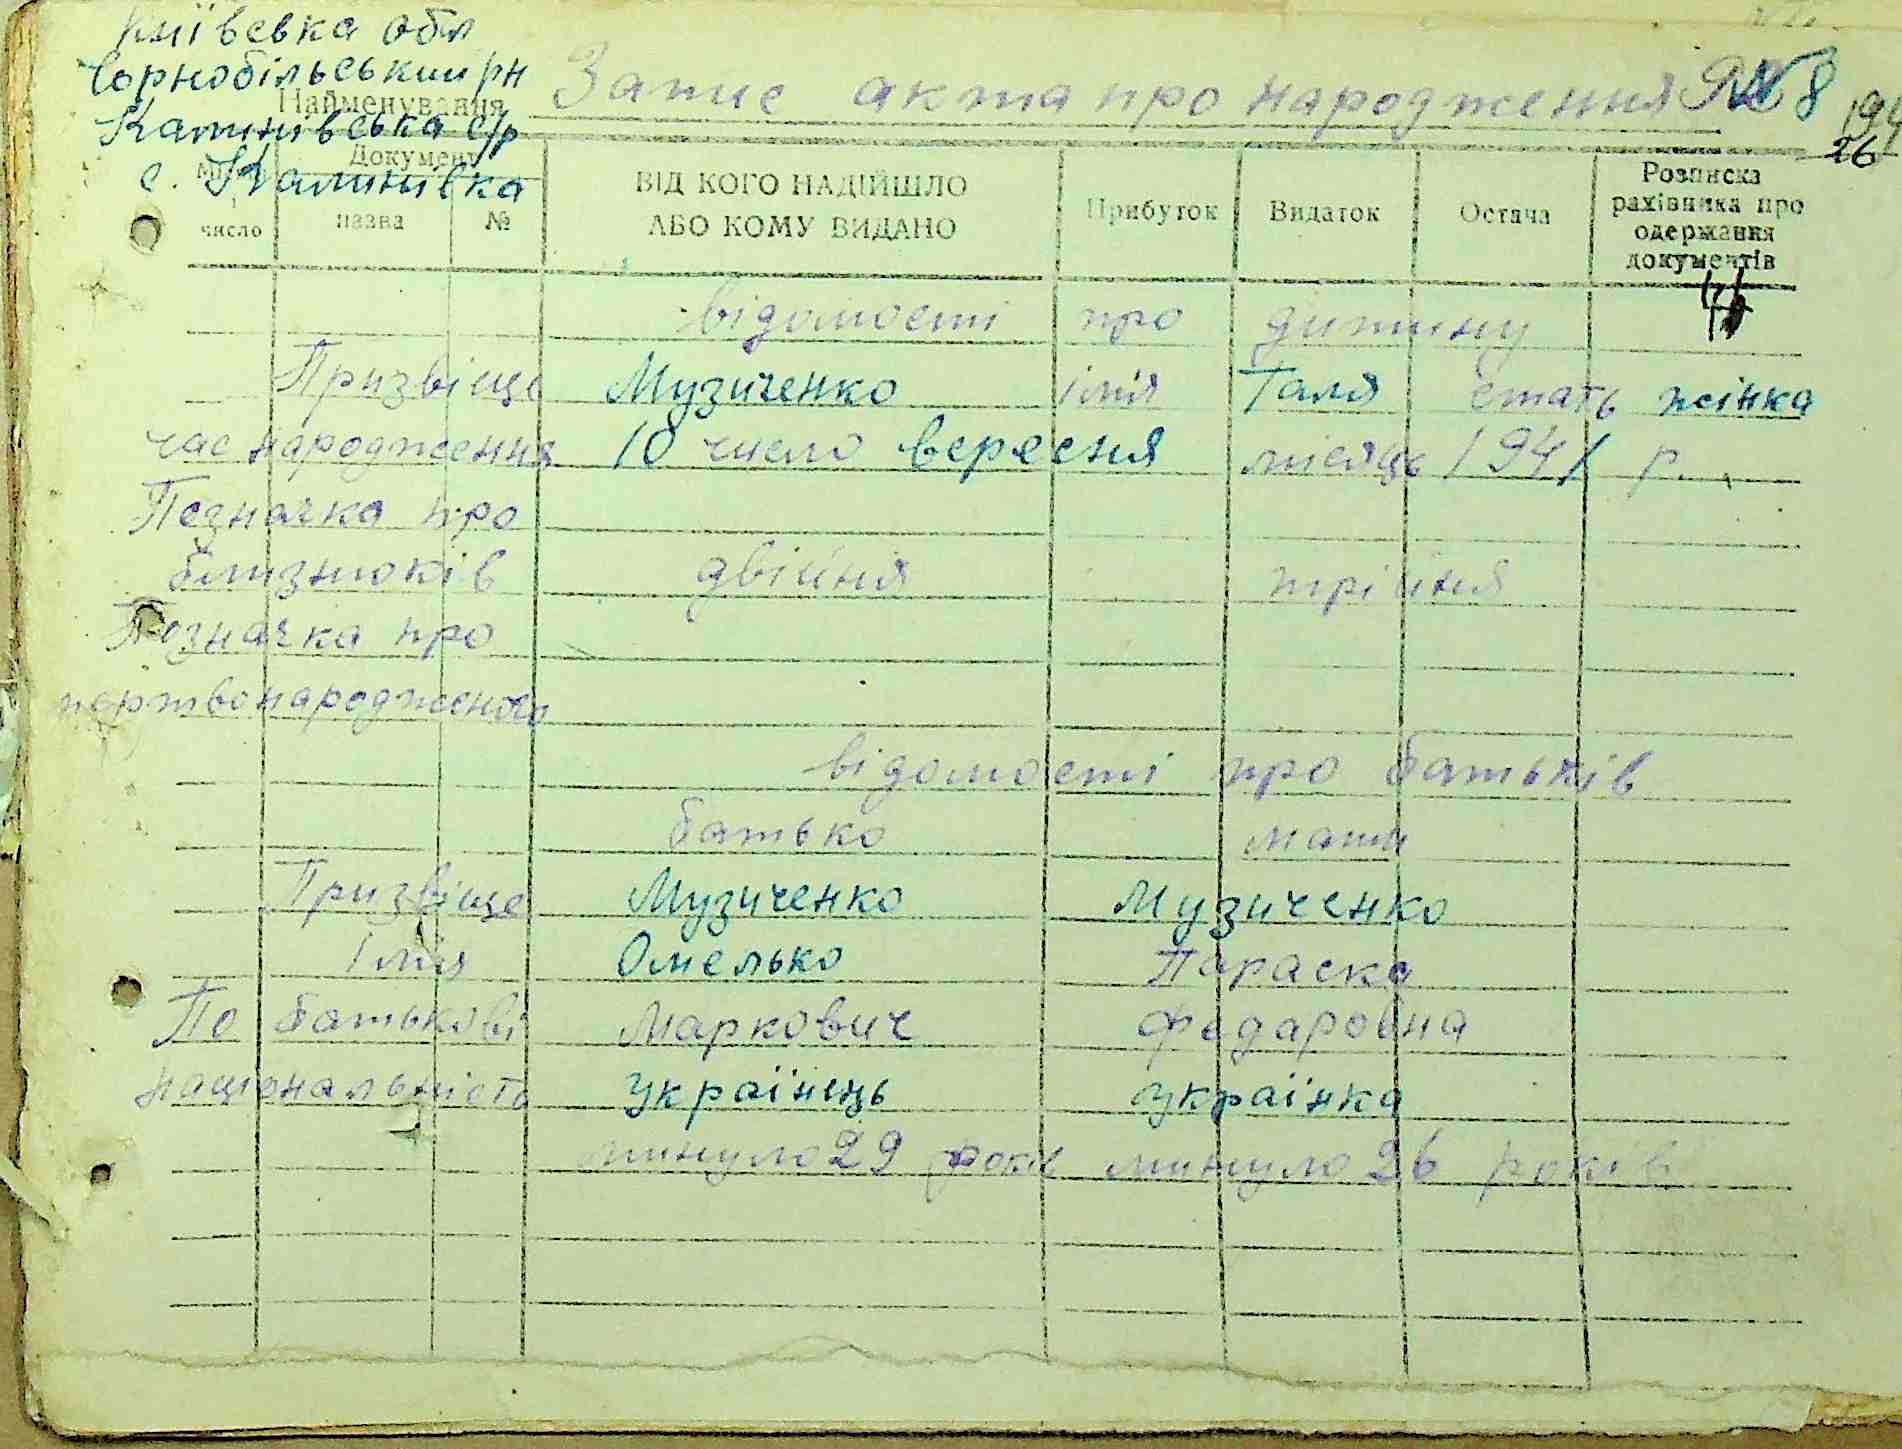 Київська обл
Чорнобільський рн
Найменування
Запис акта про народження № 8
Калинівська с/р
26
с. Калинівка
Документ
число
назва
№
ВІД КОГО НАДІЙШЛО
АБО КОМУ ВИДАНО
Прибуток
Видаток
Остача
Розписка
рахівника про
одержання
документів
відомості про дитину
Призвіще Музиченко імя Галя стать жінка
час народження 10 число вересня місяць 1941 р.
Позначка про
близнюків двійня трійня
Позначка про
мертвонародженого
відомості про батьків
батько мати
Призвіще Музиченко Музиченко
Імія Омелько Параска
По батькові Маркович Федаровна
національність українець українка
минуло 29 років минуло 26 років